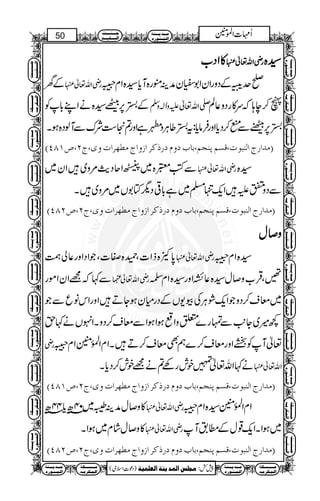 50
اُمہات المؤمنین
سیدہ رضی اللہ تعالیٰ عنہا کا ادب
صلح حدیبیہ کے دوران ابوسفیان مدینہ منورہ آیا سیدہ ام حبیبہ رضی اللہ تعالیٰ عنہا کے گھر
پہنچ کر چاہا کہ سرکار دو عالم صلی اللہ تعالیٰ علیہ والہ وسلم کے بستر پر بیٹھے سیدہ نے اپنے باپ کو
بستر پر بیٹھنے سے منع کر دیا اور فرمایا: یہ بستر طاہر و مطہر ہے اور تم نجاست شرک سے آلودہ ہو۔
(مدارج النبوت،قسم پنجم،باب دوم درذکر ازواج مطہرات وی،ج۲،ص۴۸۱)
سیدہ رضی اللہ تعالیٰ عنہا سے کتب معتبرہ میں پینسٹھ احادیث مروی ہیں ان میں
سے دو متفق علیہ ہیں ایک تنہا مسلم میں ہے باقی دیگر کتابوں میں مروی ہیں۔
(مدارج النبوت،قسم پنجم،باب دوم درذکر ازواج مطہرات وی،ج۲،ص۴۸۲)
وصال
سیدہ ام حبیبہ رضی اللہ تعالیٰ عنہا پاکیزہ ذات، حمیدہ صفات، جواد اور عالی ہمت
تھیں، قرب وصال سیدہ عائشہ اور سیدہ ام سلمہ رضی اللہ تعالیٰ عنہما سے کہا کہ مجھے ان امور
میں معاف کر دو جو ایک شوہر کی بیویوں کے درمیان ہو جاتے ہیں اور اس نوع سے جو
کچھ میری جانب سے تمہارے متعلق واقع ہوا ہو اسے معاف کر دو۔ انہوں نے کہا حق
تعالیٰ آپ کو بخشے اور معاف کرے ہم بھی معاف کرتے ہیں۔ ام المؤمنین ام حبیبہ رضی
اللہ تعالیٰ عنہا نے کہا اللہ تعالیٰ تمہیں خوش رکھے تم نے مجھے خوش کر دیا۔
(مدارج النبوت،قسم پنجم،باب دوم درذکر ازواج مطہرات وی،ج۲،ص۴۸۱)
ام المؤمنین سیدہ ام حبیبہ رضی اللہ تعالیٰ عنہا کا وصال مدینہ طیبہ میں ۴۰ھ یا ۴۴ھ
میں ہوا۔ ایک قول کے مطابق آپ رضی اللہ تعالیٰ عنہا کا وصال شام میں ہوا۔
(مدارج النبوت،قسم پنجم،باب دوم درذکر ازواج مطہرات وی،ج۲،ص۴۸۲)
پیش کش: مجلس المدینة العلمیة (دعوت اسلامی)